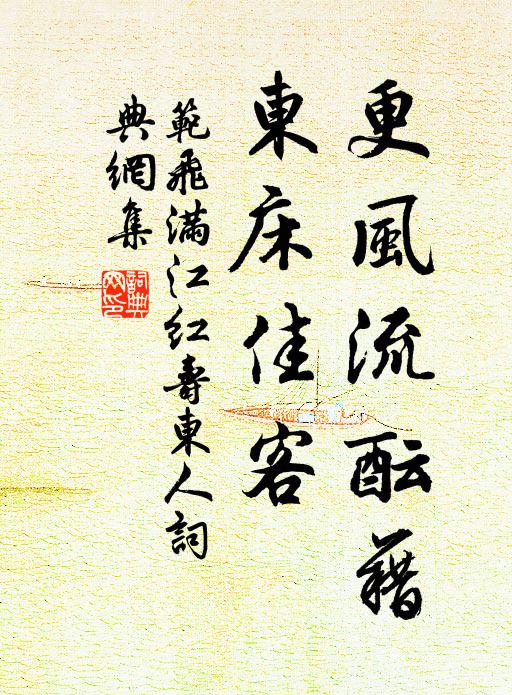 更風流酝藉
東床佳客
範飛滿江紅壽東人詞
典網集
詞典網印